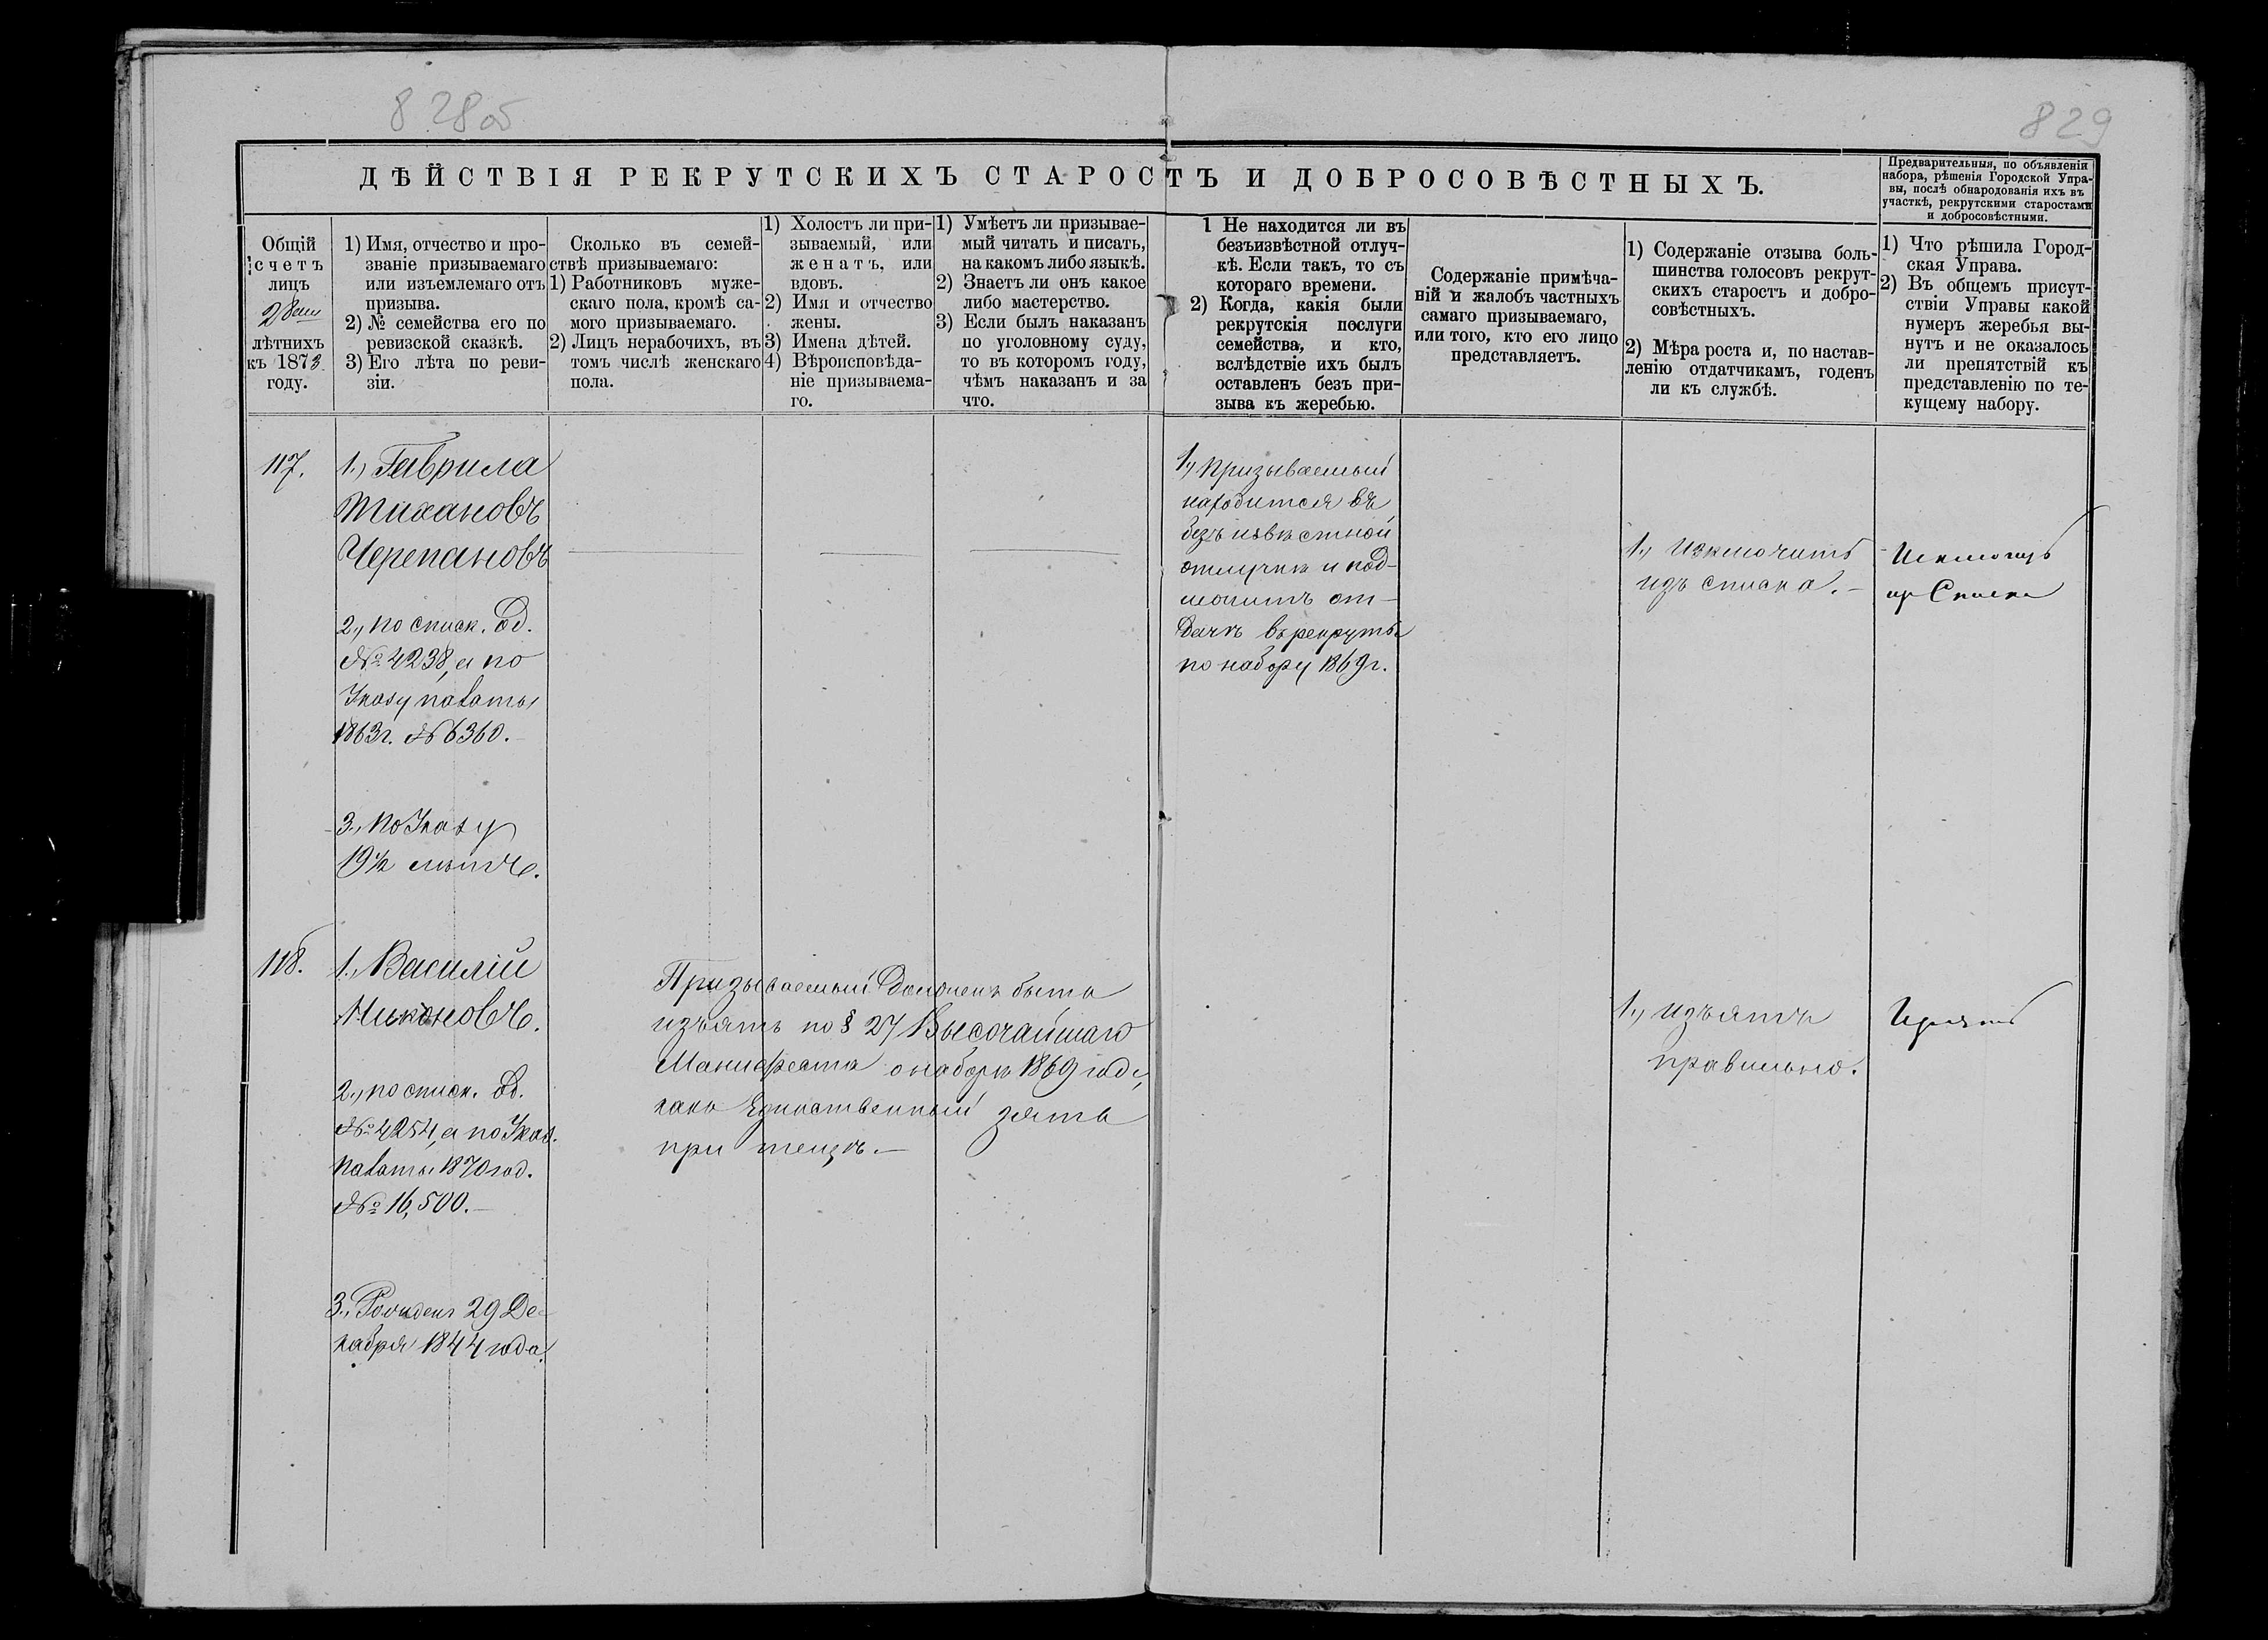 828об
829
ДѢЙСТВІЯ РЕКРУТСКИХЪ СТАРОСТЪ И ДОБРОСОВѢСТНЫХЪ.
Предварительныя, по объявленіи
набора, рѣшенія Городской Упра-
вы, послѣ обнародованія ихъ въ
участкѣ, рекрутскими старостами
и добросовѣстными.
Общій
счетъ
лицъ
28ми
лѣтнихъ
къ 1873
году.
1) Имя, отчество и про-
званіе призываемаго
или изъемлемаго отъ
призыва.
2) № семейства его по
ревизской сказкѣ.
3) Его лѣта по реви-
зіи.
Сколько въ семей-
ствѣ призываемаго:
1) Работниковъ муже-
скаго пола, кромѣ са-
мого призываемаго.
2) Лицъ нерабочихъ, въ
томъ числѣ женскаго
пола.
1) Холостъ ли при-
зываемый, или
женатъ, или
вдовъ.
2) Имя и отчество
жены.
3) Имена дѣтей.
4) Вѣроисповѣда-
ніе призываема-
го.
1) Умѣетъ ли призывае-
мый читать и писать,
на какомъ либо языкѣ.
2) Знаетъ ли онъ какое
либо мастерство.
3) Если былъ наказанъ
по уголовному суду,
то въ которомъ году,
чѣмъ наказанъ и за
что.
1 Не находится ли въ
безъизвѣстной отлуч-
кѣ. Если такъ, то съ
котораго времени.
2) Когда, какія были
рекрутскія послуги
семейства, и кто,
вслѣдствіе ихъ былъ
оставленъ безъ при-
зыва къ жеребью.
Содержаніе примѣча-
ній и жалобъ частныхъ
самаго призываемаго,
или того, кто его лицо
представляетъ.
1) Содержаніе отзыва боль-
шинства голосовъ рекрут-
скихъ старостъ и добро-
совѣстныхъ.
2) Мѣра роста и, по настав-
ленію отдатчикамъ, годенъ
ли къ службѣ.
1) Что рѣшила Город-
ская Управа.
2) Въ общемъ присут-
ствіи Управы какой
нумеръ жеребья вы-
нутъ и не оказалось
ли препятствій къ
представленію по те-
кущему набору.
117.
1., Гаврила
Тихановъ
Черепановъ
2., по списк. Од.
№ 4238, а по
Указу палаты
1863г. № 6360.
3., по Указу
19½ лѣтъ.
1., Призываемый
находится въ
безъизвѣстной
отлучкѣ и под-
лежитъ от-
дачѣ въ рекруты
по набору 1869г.
1., Исключить
изъ списка.
Исключить
из Списка
118.
1., Василій
Никоновъ.
2., по списк. Од.
№ 4254, а по Указ.
палаты 1870 год.
№ 16,500.
3., Рожденъ 29 Де-
кабря 1844 года.
Призываемый долженъ быть
изъятъ по § 27 Высочайшаго
Манифеста о наборѣ 1869 года,
какъ Единственный зять
при тещѣ.
1., Изъятъ
правильно.
Изъять